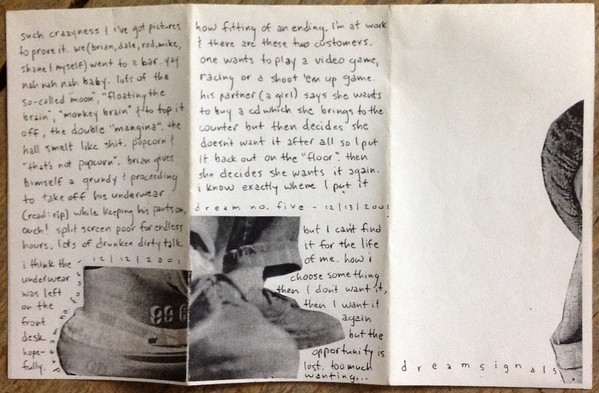 such crazyness & i've got pictures
to prove it. we (brian, dale, rod, mike,
shane & myself) went to a bar. yay
nah nah nah baby. lots of the
so-called "moon", "floating the
brain", "monkey brain" & to top it
off, the double "mangina". the
hall smelt like shit. popcorn &
"that's not popcorn". brian gives
himself a grundy & proceeding
to take off his underwear
(read: rip) while keeping his pants on.
ouch! split screen poor for endless
hours. lots of drunken dirty talk.
i think the
underwear
was left
on the
front
desk
hope-
fully.
dream no. four - 12/12/2001
how fitting of an ending. I'm at work
& there are these two customers.
one wants to play a video game,
racing or a shoot 'em up game.
his partner (a girl) says she wants
to buy a cd which she brings to the
counter but then decides she
doesn't want it after all so I put
it back out on the "floor". then
she decides she wants it again.
i know exactly where I put it
dream no. five - 12/13/2001
but I can't find
it for the life
of me. how i
choose something
then I don't want it,
then I want it
again
but the
opportunity is
lost. too much
wanting...
dreamsignals